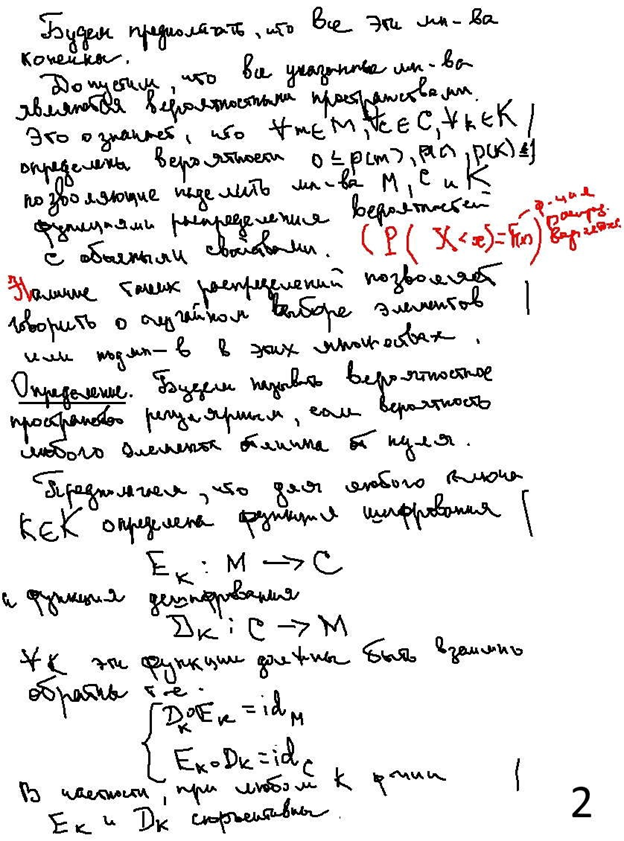 Будем предполагать, что все эти мн-ва
конечны.
Допустим, что все указанные мн-ва
являются вероятностными пространствами.
Это означает, что ∀m∈M, ∀c∈C, ∀k∈K
определены вероятности 0≤p(m), p(c), p(k)≤1
позволяющие наделить мн-ва M, C и K
функциями распределения вероятностей
с обычными свойствами. (P(X<x)=F(x)) ф-ция
распр.
вероятн.
Наличие таких распределений позволяет
говорить о случайном выборе элементов
или подмн-в в этих множествах.
Определение. Будем называть вероятностное
пространство регулярным, если вероятность
любого элемента отлична от нуля.
Предполагаем, что для любого ключа
k∈K определена функция шифрования
E_k : M → C
и функция дешифрования
D_k : C → M
∀k эти функции должны быть взаимно
обратны т-е.
{ D_k∘E_k = id_M
E_k∘D_k = id_C
В частности, при любом k ф-ции
E_k и D_k сюръективны.
2